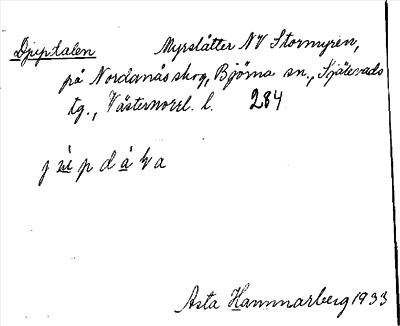 Djuptalen Myrslåtter NV Stormyren,
på Nordanås skog, Björna sn., Själevads
tg., Västernorrl. l. 284
Asta Hammarberg 1933